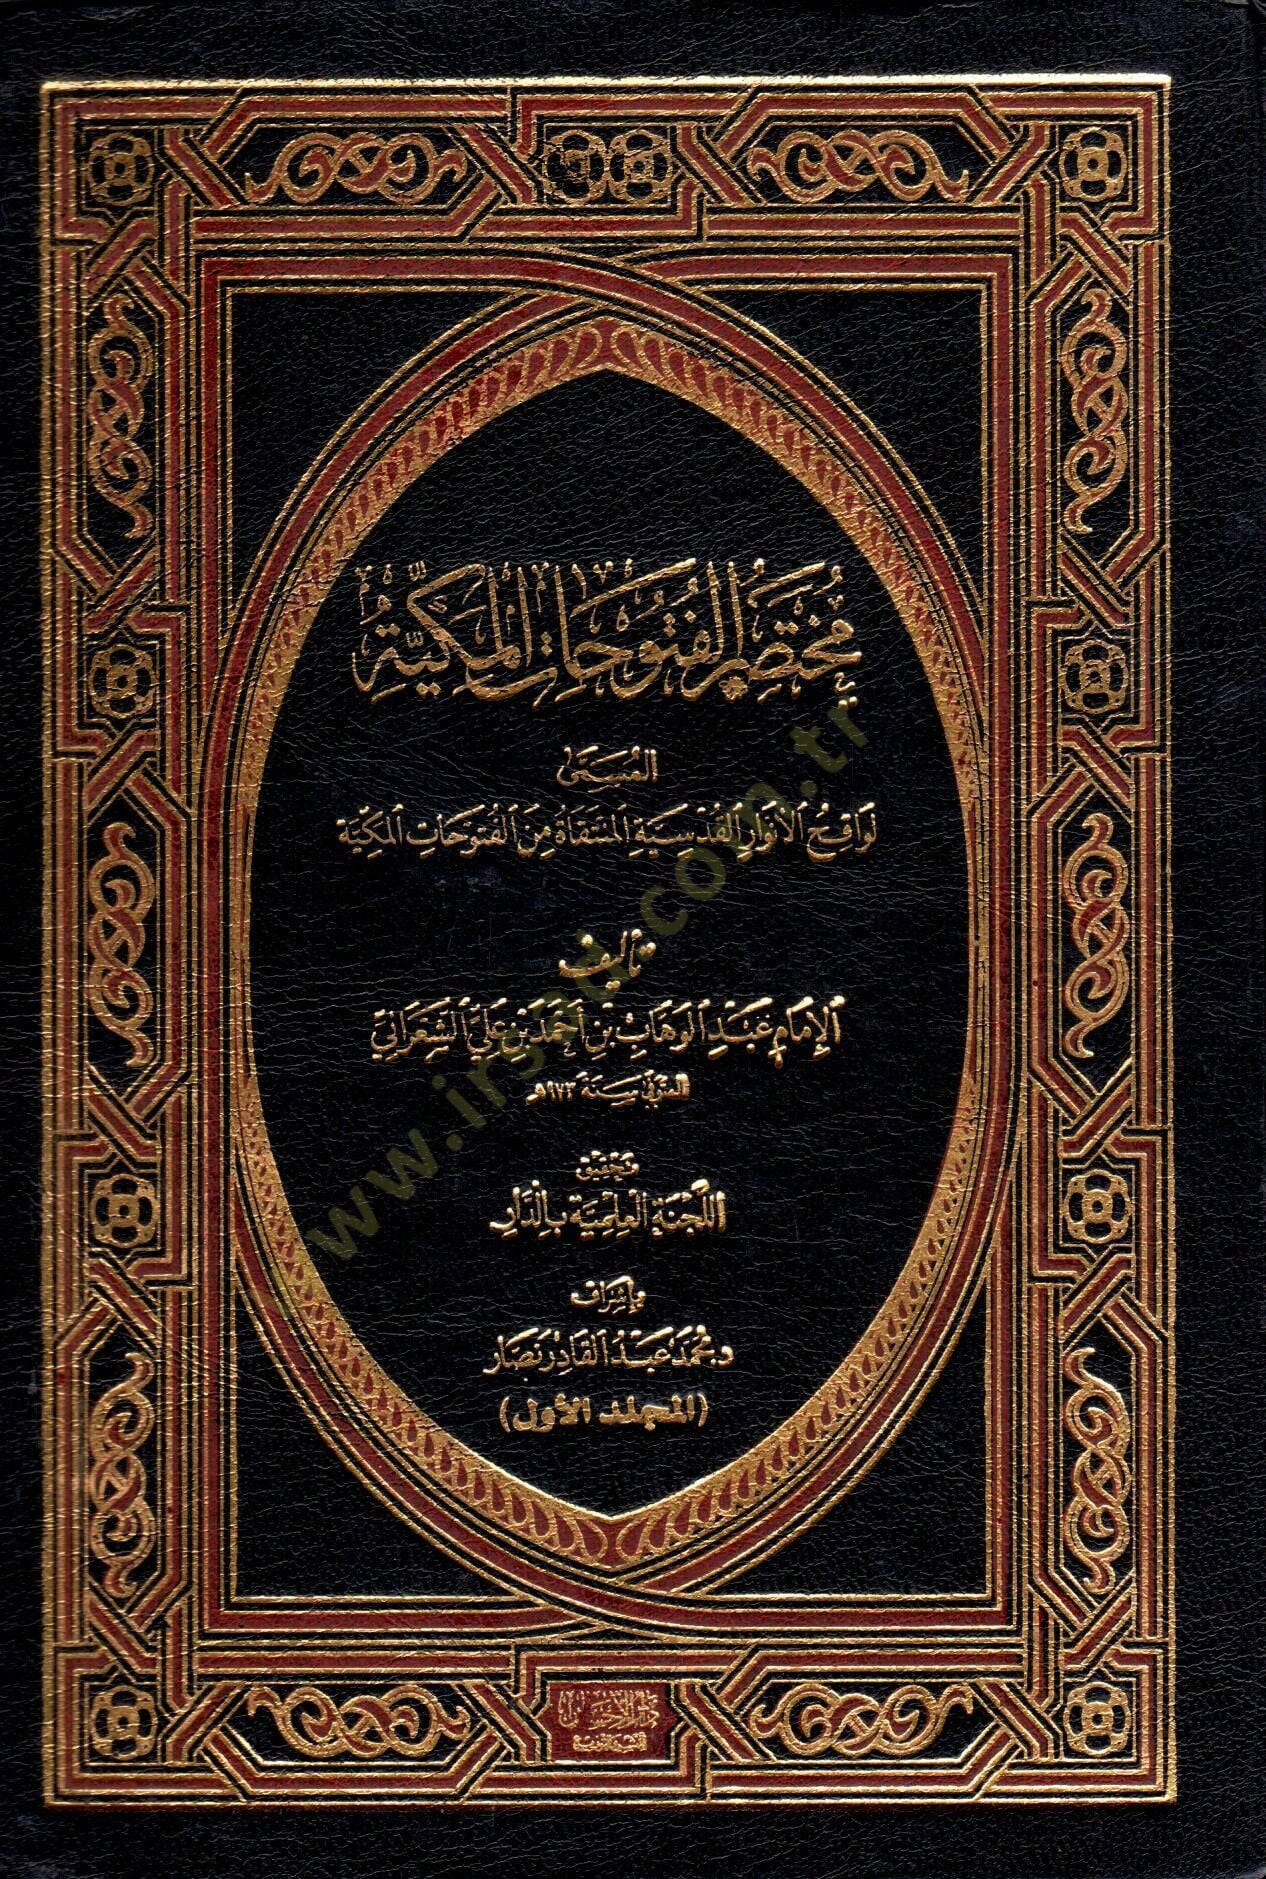 مُخْتَصَرُ الفُتُوحَاتِ المَكِّيَّةِ
المُسَمَّى
لَوَاقِحُ الأَنْوَارِ القُدْسِيَّةِ المُنْتَقَاةُ مِنَ الفُتُوحَاتِ المَكِّيَّة
تأليف
الإِمَامِ عَبْدِ الوَهَّابِ بْنِ أَحْمَدَ بْنِ عَلِيٍّ الشَّعْرَانِيِّ
المتوفى سنة ٩٧٣هـ
تحقيق
اللَّجْنَةِ العِلْمِيَّةِ بِالدَّارِ
بإشراف
د. محمد عبد القادر نصار
(المجلد الأول)
دار الإحسان
www.irsad.com.tr